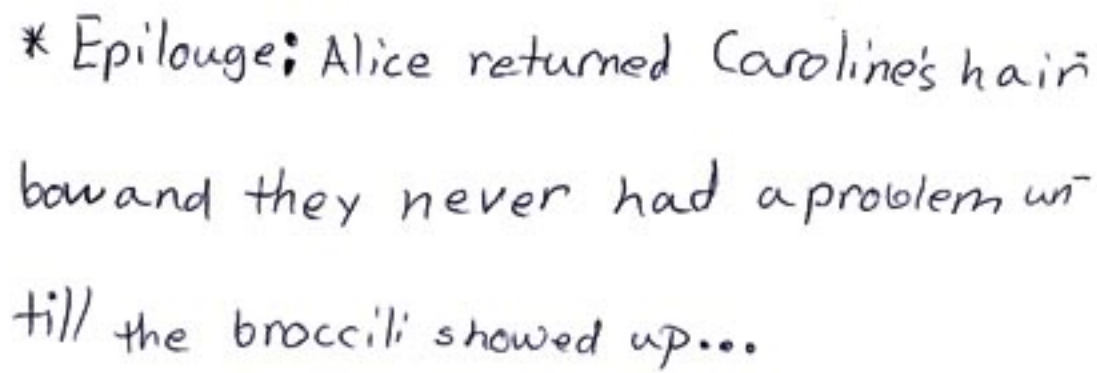 * Epilouge: Alice returned Caroline's hair
bow and they never had a problem un-
till the broccili showed up...